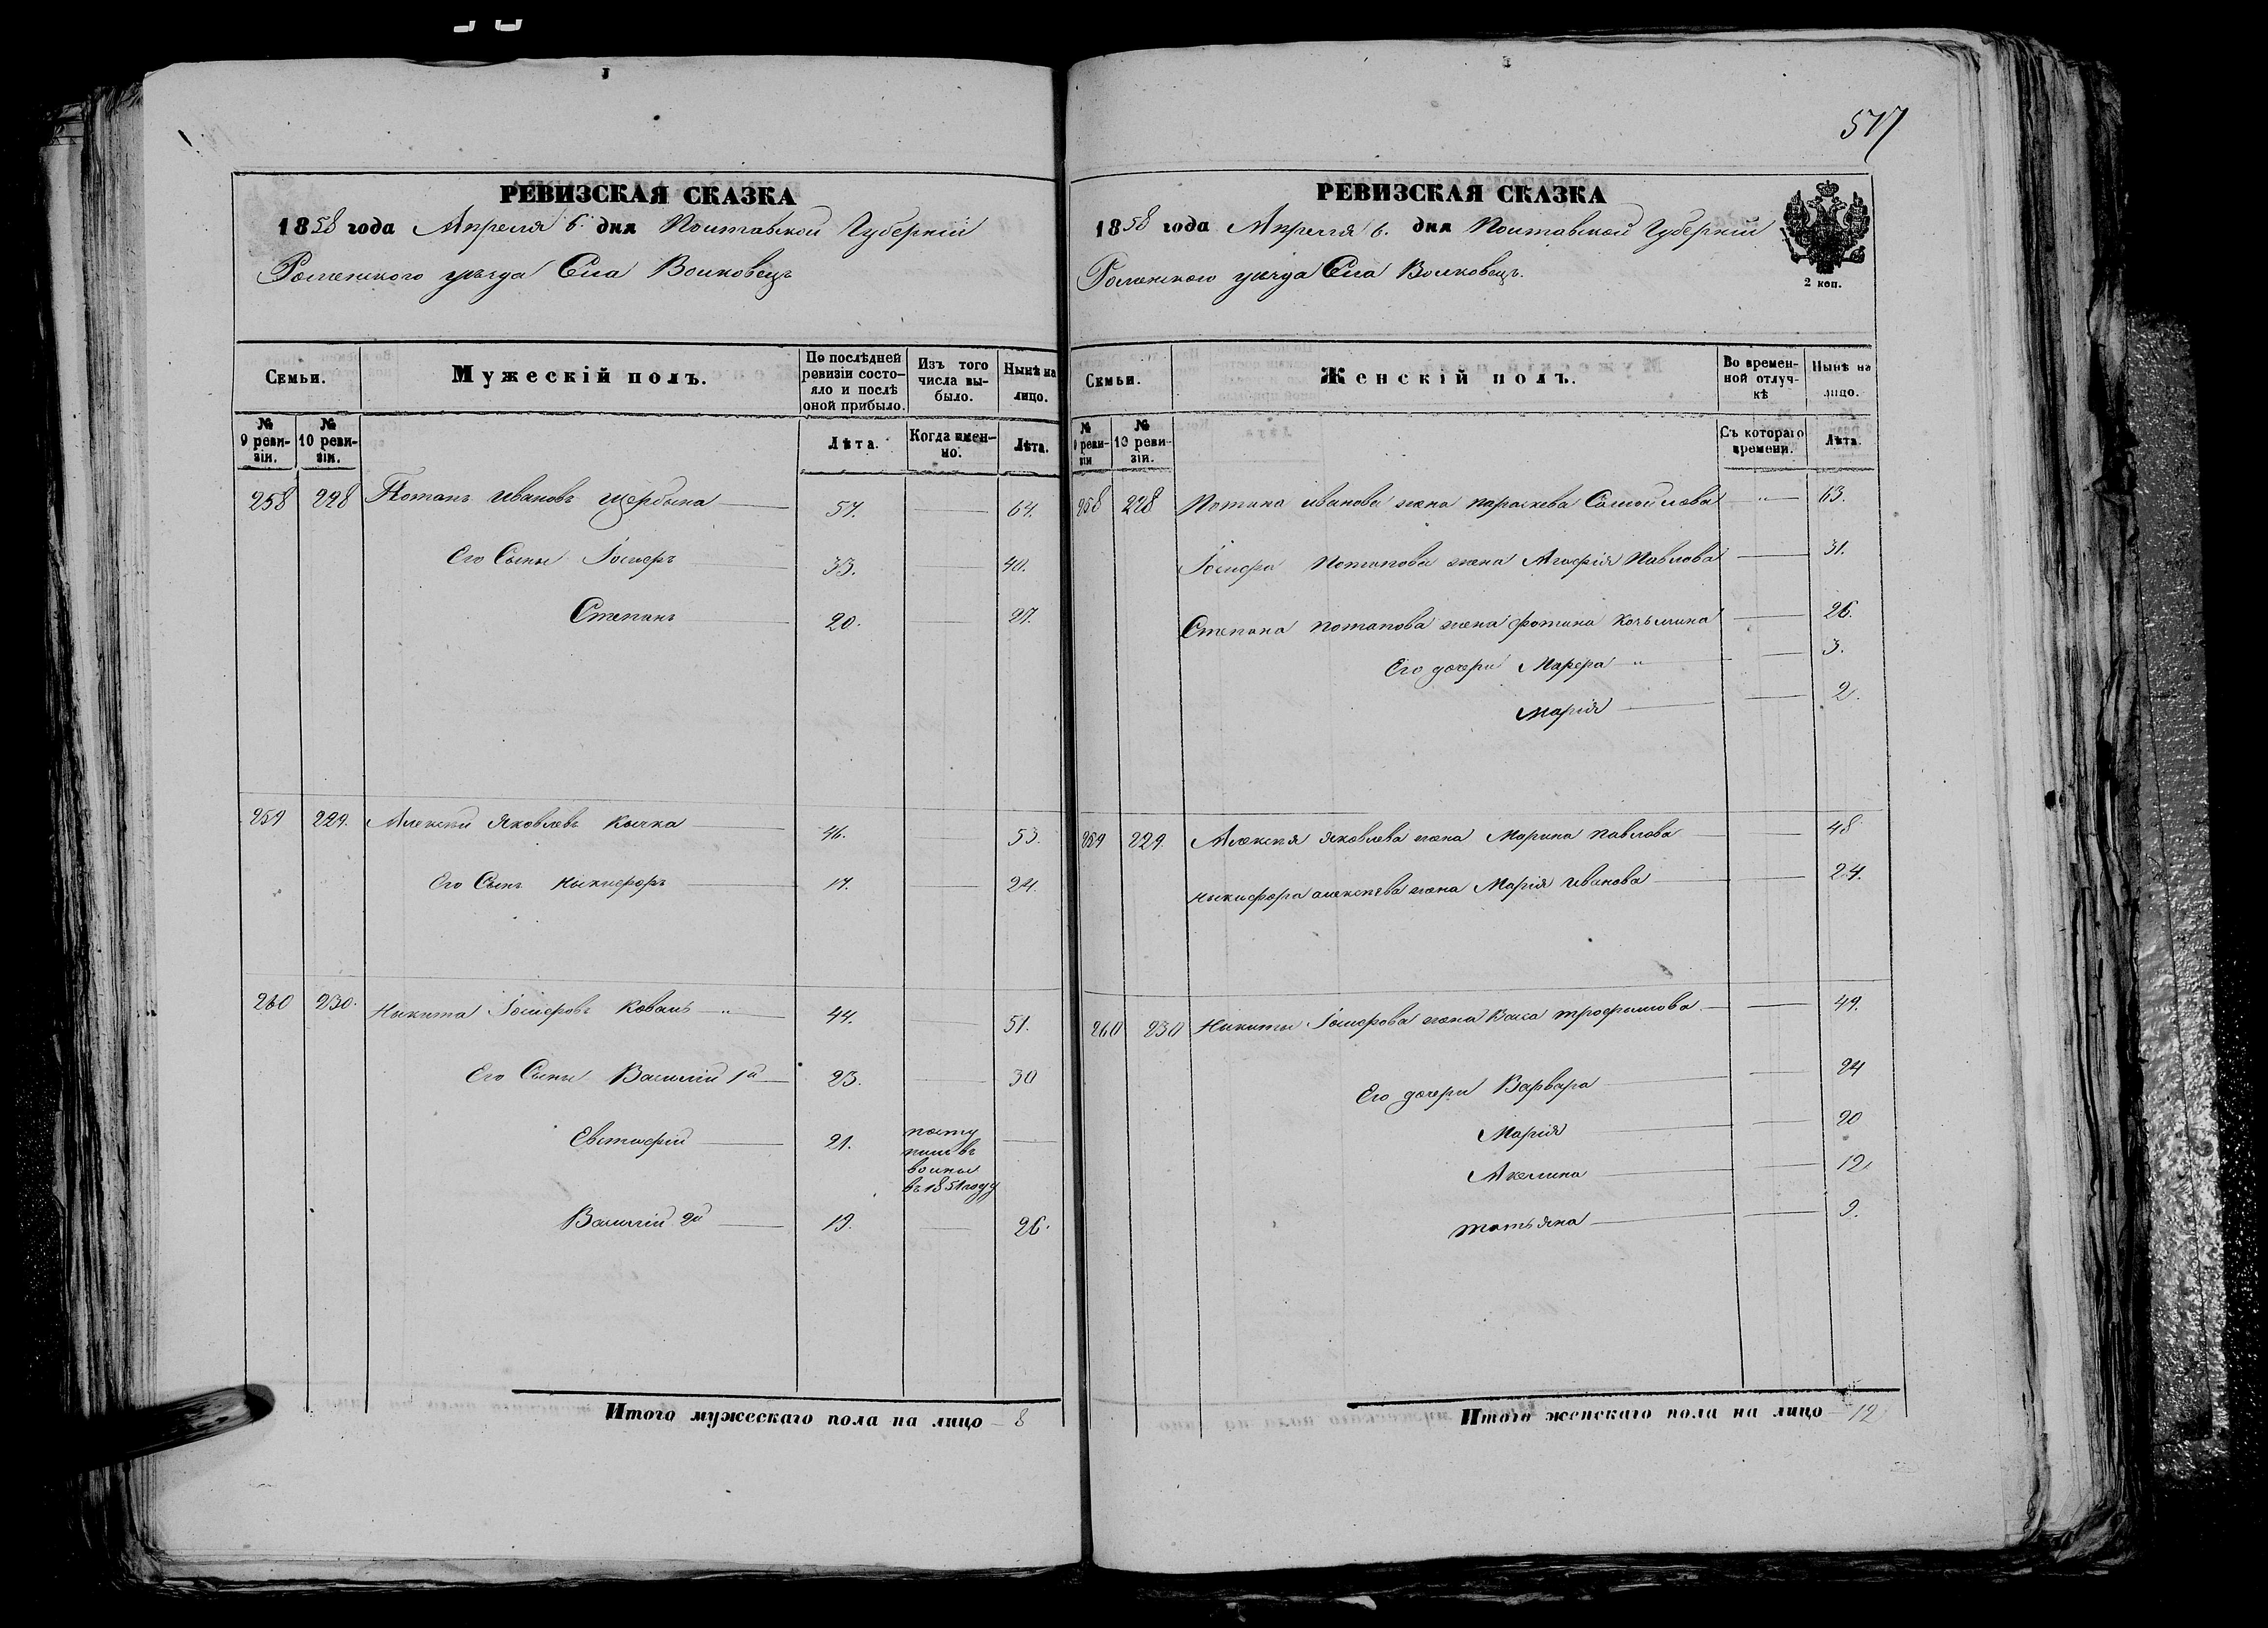 577
РЕВИЗСКАЯ СКАЗКА
1858 года Апреля 6. дня Полтавской Губерніи
Роменского уѣзда Села Волковецъ
Семьи.
Мужескій полъ.
По послѣдней ревизіи состояло и послѣ оной прибыло.
Изъ того числа выбыло.
Нынѣ на лицо.
№ 9 ревизіи.
№ 10 ревизіи.
Лѣта.
Когда именно.
Лѣта.
258 228 Потапъ Ивановъ Щербина 57. 64.
Его Сыны Іосифъ 33. 40.
Степанъ 20. 27.
259 229. Алексѣй Яковлевъ Кычка 46. 53.
Его Сынъ Никифоръ 17. 24.
260 230. Никита Іосифовъ Коваль 44. 51.
Его Сыны Василій 1й 23. 30
Евстафій 21. посту
пилъ въ
воины
въ 1851 году
Василій 2й 19. 26.
Итого мужескаго пола на лицо 8
РЕВИЗСКАЯ СКАЗКА
1858 года Апреля 6. дня Полтавской Губерніи
Роменского уѣзда Села Волковецъ.
2 коп.
Семьи.
Женскій полъ.
Во временной отлучкѣ
Нынѣ на лицо.
№ 9 ревизіи
№ 10 ревизіи.
Съ котораго времени.
Лѣта.
258 228 Потапа Иванова жена Параскева Самойлова 63.
Іосифа Потапова жена Агафія Павлова 31.
Степана Потапова жена Фотина Козьмина 26.
Его дочери Марфа 3.
Марія 2.
259 229. Алексѣя Яковлева жена Марина Павлова 48
Никифора Алексѣева жена Марія Иванова 24.
260 230 Никиты Іосифова жена Васса Трофимова 49.
Его дочери Варвара 24
Марія 20
Акелина 12
Татьяна 9.
Итого женскаго пола на лицо 12